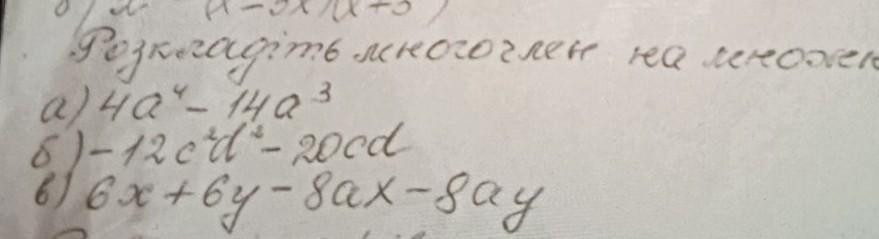 Розкладіть многочлен на множен
а) 4a⁴ - 14a³
б) -12c²d² - 20cd
в) 6x + 6y - 8ax - 8ay